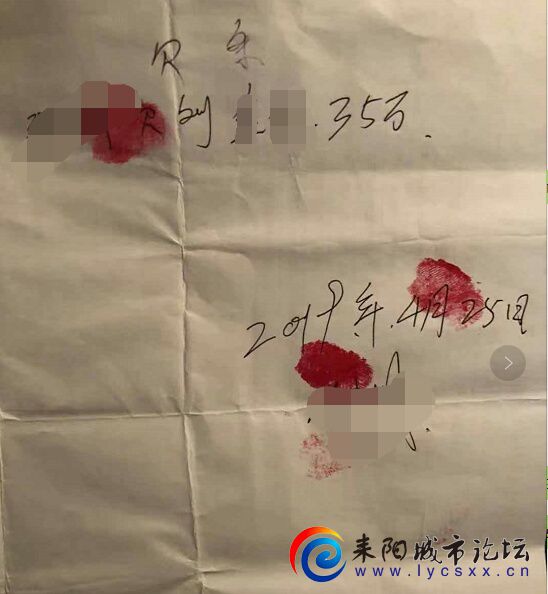 欠条
欠刘 35万.
2019年.4月25日
耒阳城市论坛
www.lycsxx.cn